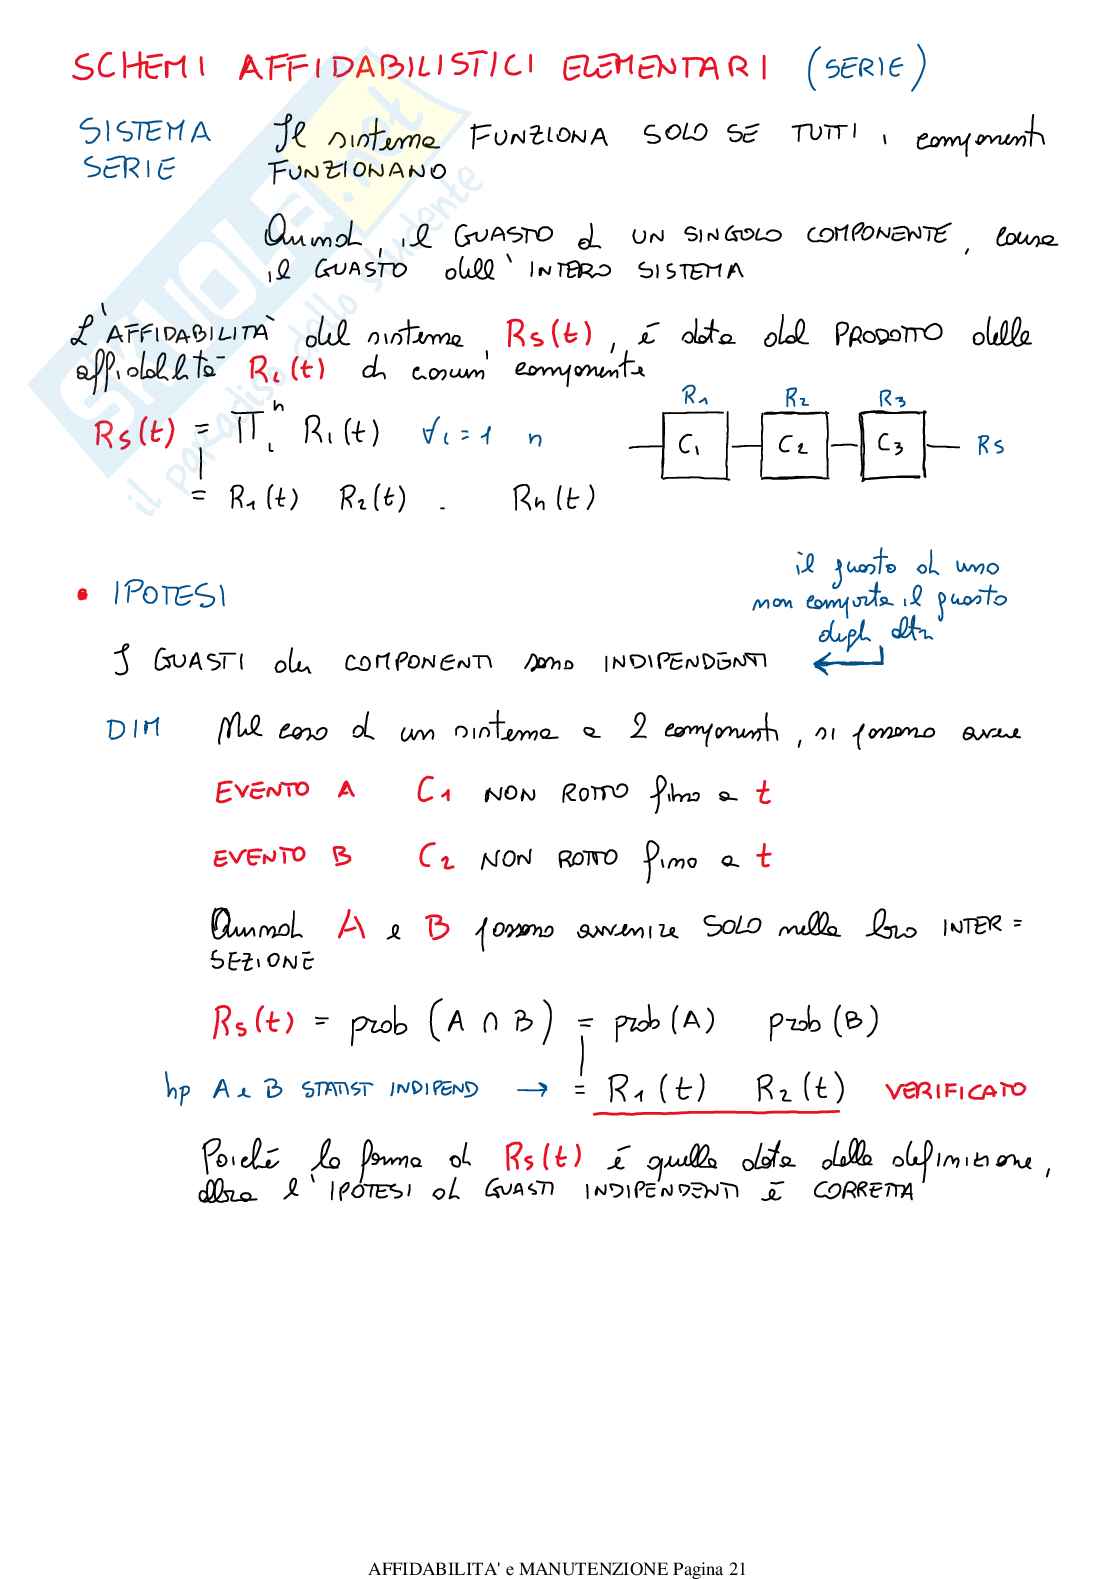 SCHEMI AFFIDABILISTICI ELEMENTARI (SERIE)
SISTEMA SERIE
Il sistema FUNZIONA SOLO SE TUTTI i componenti
FUNZIONANO
Quindi, il GUASTO di UN SINGOLO COMPONENTE, causa
il GUASTO dell'INTERO SISTEMA
L'AFFIDABILITÀ del sistema, Rs(t), è data dal PRODOTTO delle
affidabilità Ri(t) di ciascun componente
Rs(t) = Π i n Ri(t) ∀i = 1 n
= R1(t) R2(t) . Rn(t)
R1 R2 R3
C1 C2 C3 Rs
• IPOTESI
il guasto di uno
non comporta il guasto
degli altri
I GUASTI dei COMPONENTI sono INDIPENDENTI
DIM Nel caso di un sistema a 2 componenti, si possono avere
EVENTO A C1 NON ROTTO fino a t
EVENTO B C2 NON ROTTO fino a t
Quindi A e B possono avvenire SOLO nella loro INTER=
SEZIONE
Rs(t) = prob (A ∩ B) = prob(A) prob(B)
hp A e B STATIST INDIPEND → = R1(t) R2(t) VERIFICATO
Poiché la forma di Rs(t) è quella data dalla definizione,
allora l'IPOTESI di GUASTI INDIPENDENTI è CORRETTA
SKUOLA.net
il paradiso dello studente
AFFIDABILITA' e MANUTENZIONE Pagina 21